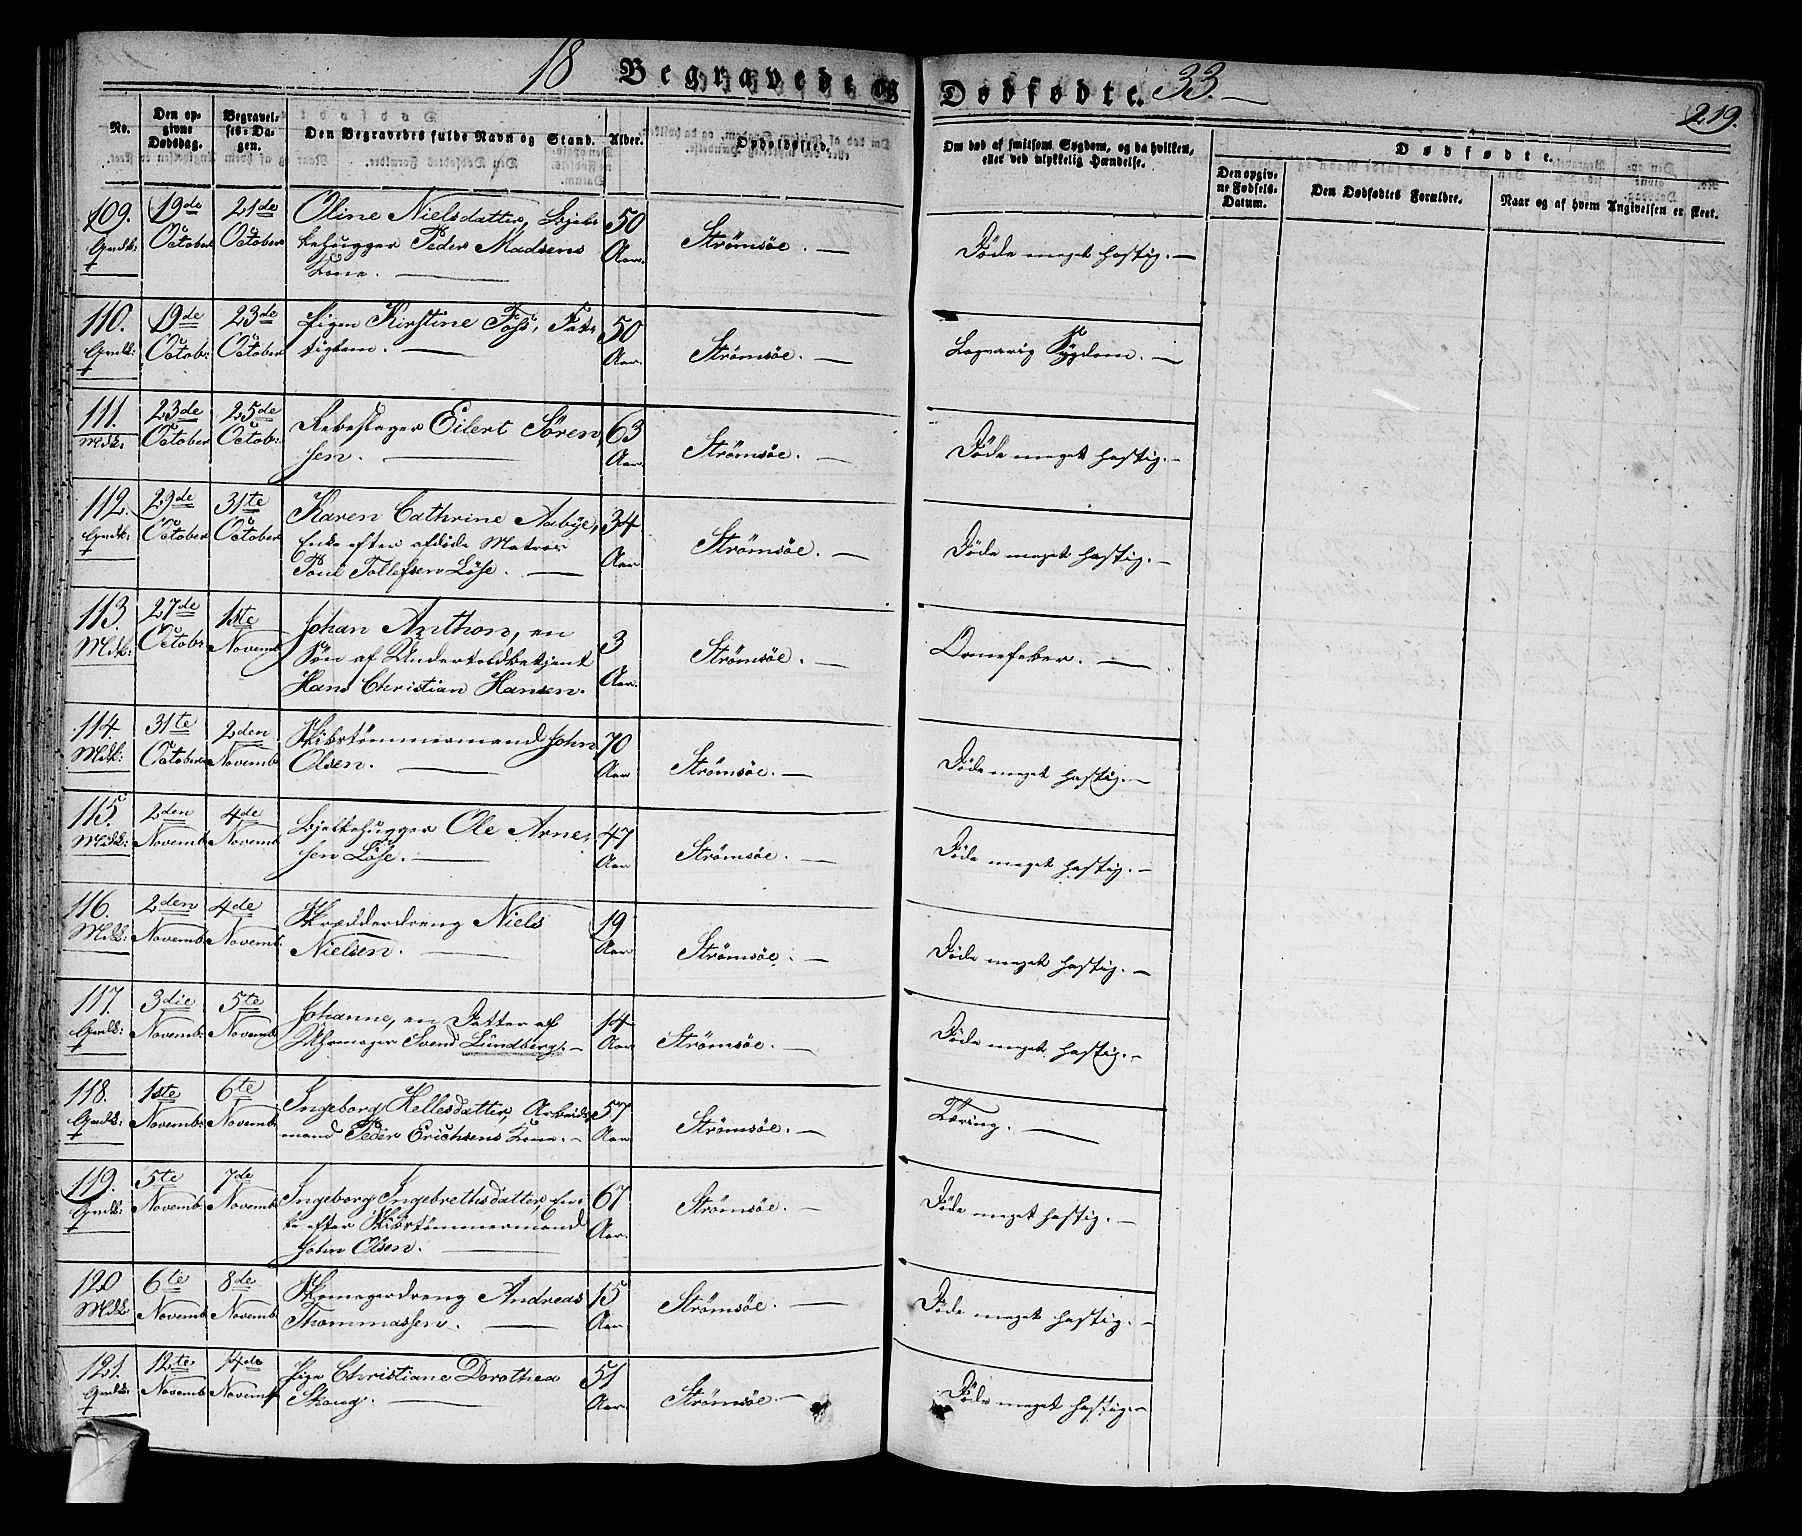 18 Begravede og Dødfødte. 33. 219.
No. | Den opgivne Dødsdag. | Begravelses-Dagen. | Den Begravedes fulde Navn og Stand. | Alder. | Opholdssted. | Om død af smitsom Sygdom, og da hvilken, eller ved ulykkelig Hændelse. | Dødfødte.
Den opgivne Fødsels-Datum. | Den Dødfødtes Forældre. | Naar og af hvem Angivelsen er skeet.
109. Qvndk: | 19de October | 21de October | Oline Nielsdatter, Bjel-
kehugger Peder Madsens
Kone. | 50 Aar. | Strømsöe. | Döde meget hastig.
110. Qvndk: | 19de Octob: | 23de October | Pigen Kirstine Foss, Fat-
tiglem. | 50 Aar. | Strømsöe. | Langvarig Sygdom.
111. Mdk: | 23de October | 25de Octob: | Rebslager Eilert Sören-
sen. | 63 Aar. | Strømsöe. | Döde meget hastig.
112. Qvndk: | 29de October | 31te October | Karen Cathrine Aabye,
Enke efter afdöde Matros
Poul Tollefsen Löse. | 34 Aar | Strømsöe. | Döde meget hastig.
113. Mdk: | 27de Octob: | 1ste Novemb: | Johan Anthon, en
Sön af Undertoldbetjent
Hans Christian Hansen. | 3 Aar. | Strømsöe. | Ormefeber.
114. Mdk: | 31te October | 2den Novemb: | Skibstömmermand John
Olsen. | 70 Aar | Strømsöe. | Döde meget hastig.
115. Mdk: | 2den Novemb: | 4de Novemb: | Bjelkehugger Ole Arne-
sen Löse. | 47 Aar | Strømsöe. | Döde meget hastig.
116. Mdk: | 2den Novemb: | 4de Novemb: | Skrædderdreng Niels
Nielsen. | 19 Aar | Strømsöe. | Döde meget hastig.
117. Qvndk: | 3die Novemb: | 5te Novemb: | Johanne, en Datter af
Uhrmager Svend Lundberg. | 14 Aar | Strømsöe. | Döde meget hastig.
118. Qvndk: | 1ste Novemb: | 6te Novemb: | Ingeborg Hellesdatter, Arbeids-
mand Peder Erichsens Kone. | 57 Aar. | Strømsöe. | Tæring.
119. Qvndk: | 5te Novemb: | 7de Novemb: | Ingeborg Ingebrethsdatter, En-
ke efter Skibstömmermand
John Olsen. | 67 Aar. | Strømsöe. | Döde meget hastig.
120 Mdk | 6te Novemb: | 8de Novemb: | Skomagerdreng Andreas
Thommassen. | 15 Aar | Strømsöe. | Döde meget hastig.
121. Qvndk: | 12te Novemb: | 14de Novemb: | Pige Christiane Dorothea
Skoug. | 51 Aar. | Strømsöe. | Döde meget hastig.